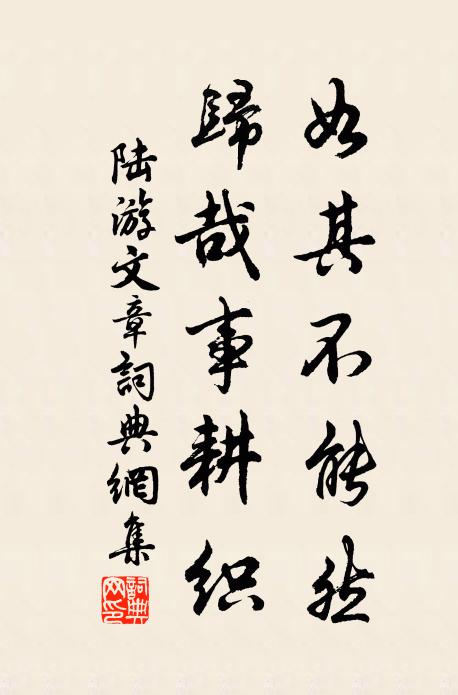 如其不能然
歸哉事耕织
陆游文章詞典網集
詞典网印